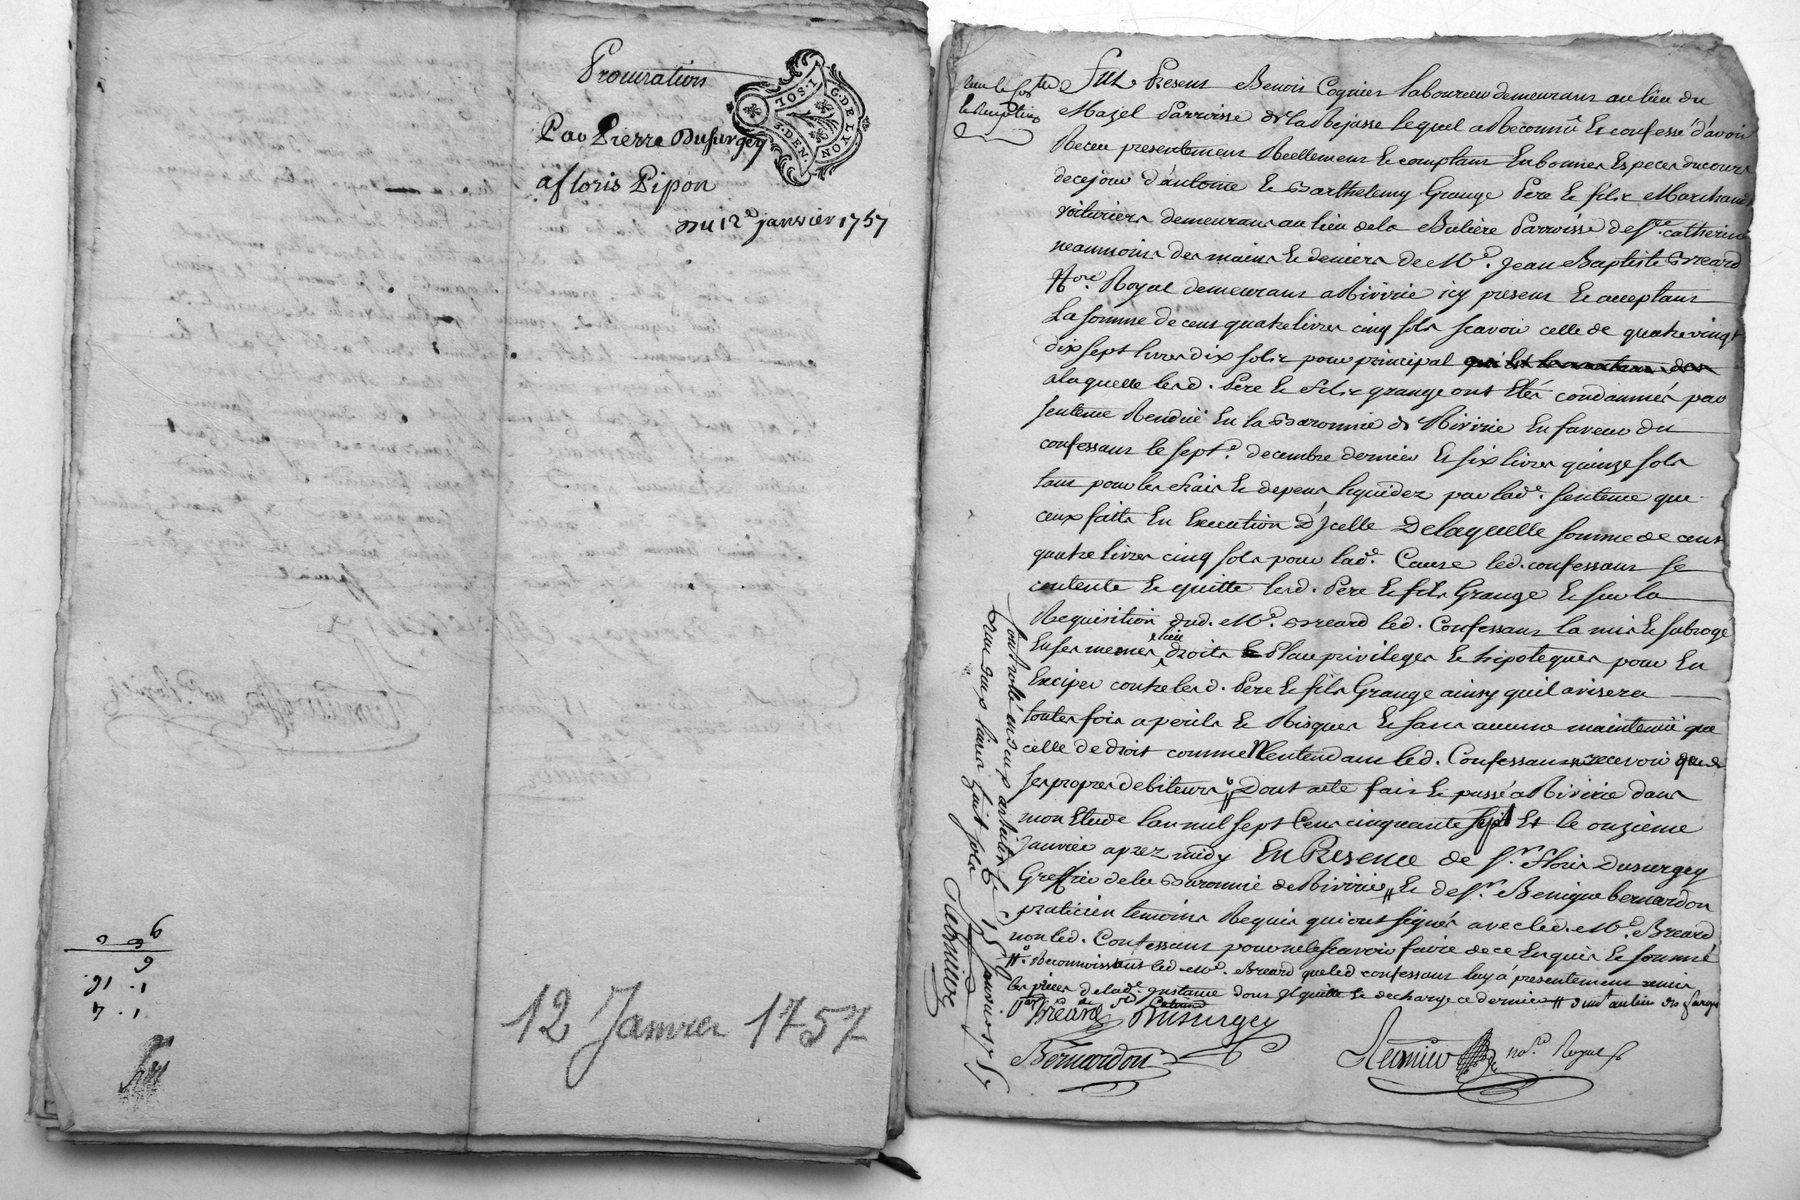 Procuration
Par Pierre Dusurgey
a floris Pipon
Du 12e janvier 1757
G. DE LYON
1. SOL
3. DEN.
12 Janvier 1757
Fut Present Benoist Cognier laboureur demeurant au lieu du
Mazel Parroisse de la Rejasse lequel a Reconnû Et confessé d'avoir
Receu presentement Reellement Et comptant En bonnes Especes du cours
de ce jour d'antoine Et Barthelemy Grange Pere Et fils Marchands
voituriers demeurant au lieu de la Bulière Parroisse de Ste. catherine
neanmoins des mains Et deniers de Me. Jean Baptiste Breard
Nore. Royal demeurant a Riverie icy present Et acceptant
La somme de cent quatre livres cinq sols scavoir celle de quatre vingt
dix sept livres dix sols pour principal
a laquelle lesd. Pere Et fils grange ont Etés condamnés par
sentence Renduë En la Baronnie de Riverie En faveur du
confessant le sept.e decembre dernier Et six livres quinze sols
tant pour les frais Et depens liquidez par lad.e sentence que
ceux faits En Execution D'Jcelle De laquelle somme de cent
quatre livres cinq sols pour lad.e Cause led. confessant se
contente Et quitte lesd. Pere Et fils Grange Et sur la
Requisition dud. Me. Breard led. Confessant la mis Et subrogé
En ses mesmes droits privileges Et hipoteques pour En
Exciper contre lesd. Pere Et fils Grange ainsy quil avisera
toutes fois a perils Et Risques Et sans aucune maintenuë que
celle de droit comme Nentendant led. Confessant recevoir que de
ses propres debiteurs Dont acte fait Et passé a Riverie dans
mon Etude lan mil sept Cent cinquante sept Et le onzième
Janvier aprez midy En Presence de Sr. Floris Dusurgey
Greffier de la Baronnie de Riverie Et de Sr. Benigne bernardon
praticien temoins Requis qui ont signés avec led. Me. Breard
non led. Confessant pour ne le scavoir faire de ce Enquis Et sommé
Reconnoissant led. Me. Breard que led confessant luy a presentement remis
les pieces de lad.e Instance dont Il quitte Et decharge ce dernier
Breard Dusurgey
Bernardon
no.re Royal